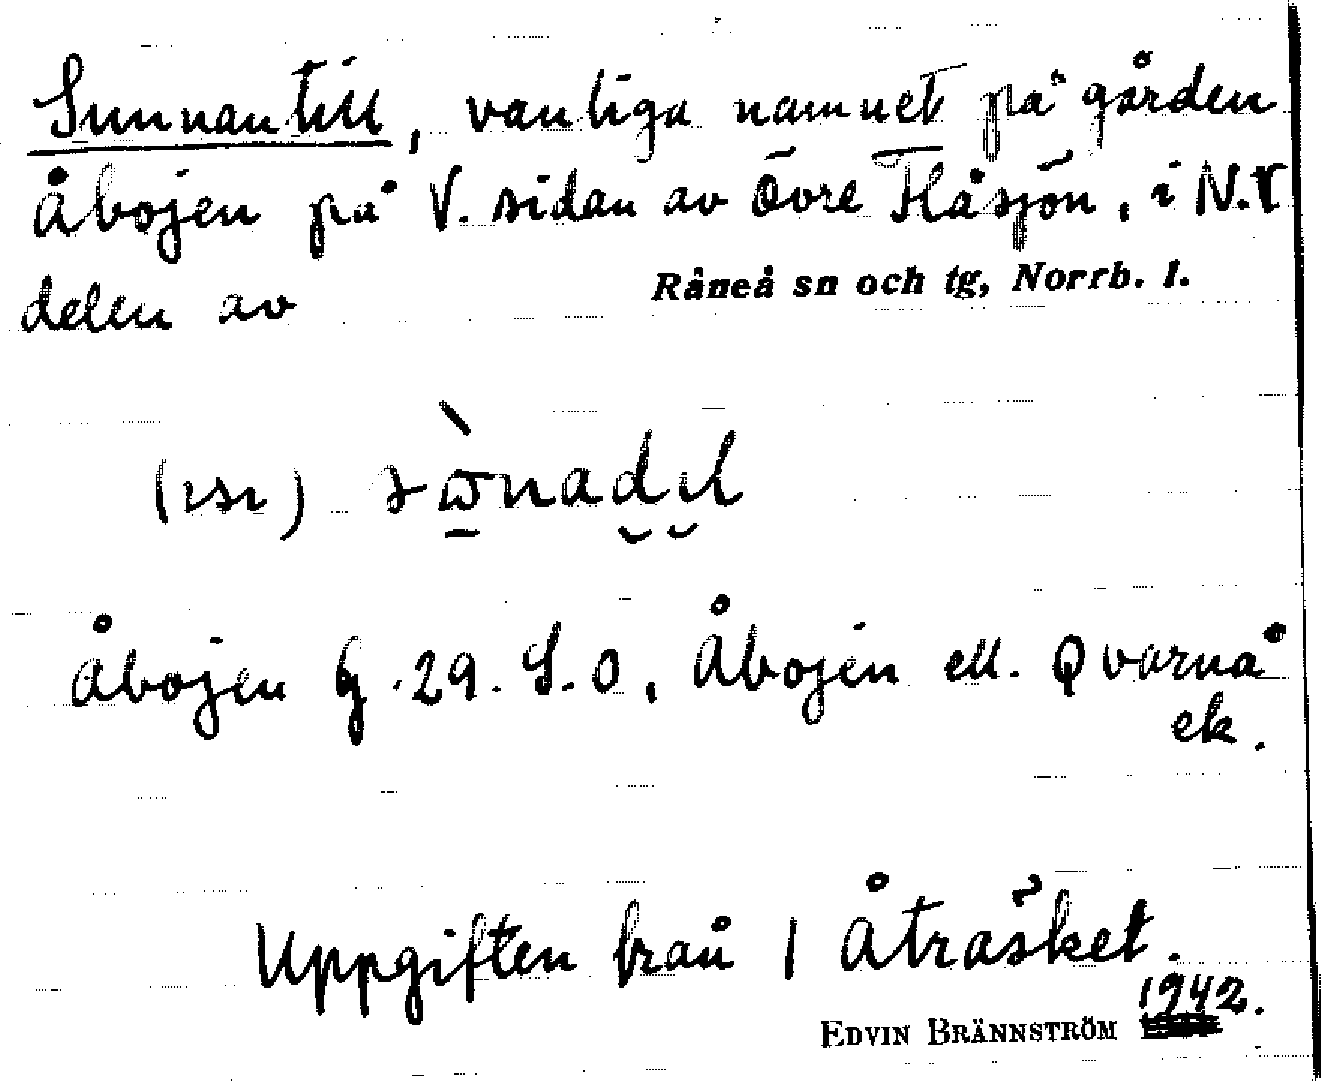 Sunnantill, vanliga namnet på gården
Åbojen på V. sidan av Övre Flåsjön, i N.V
delen av Råneå sn och tg, Norrb. l.
Åbojen G. 29. S.O, Åbojen ell. Qvarnå
ek.
Uppgiften från 1 Åträsket.
1942.
EDVIN BRÄNNSTRÖM